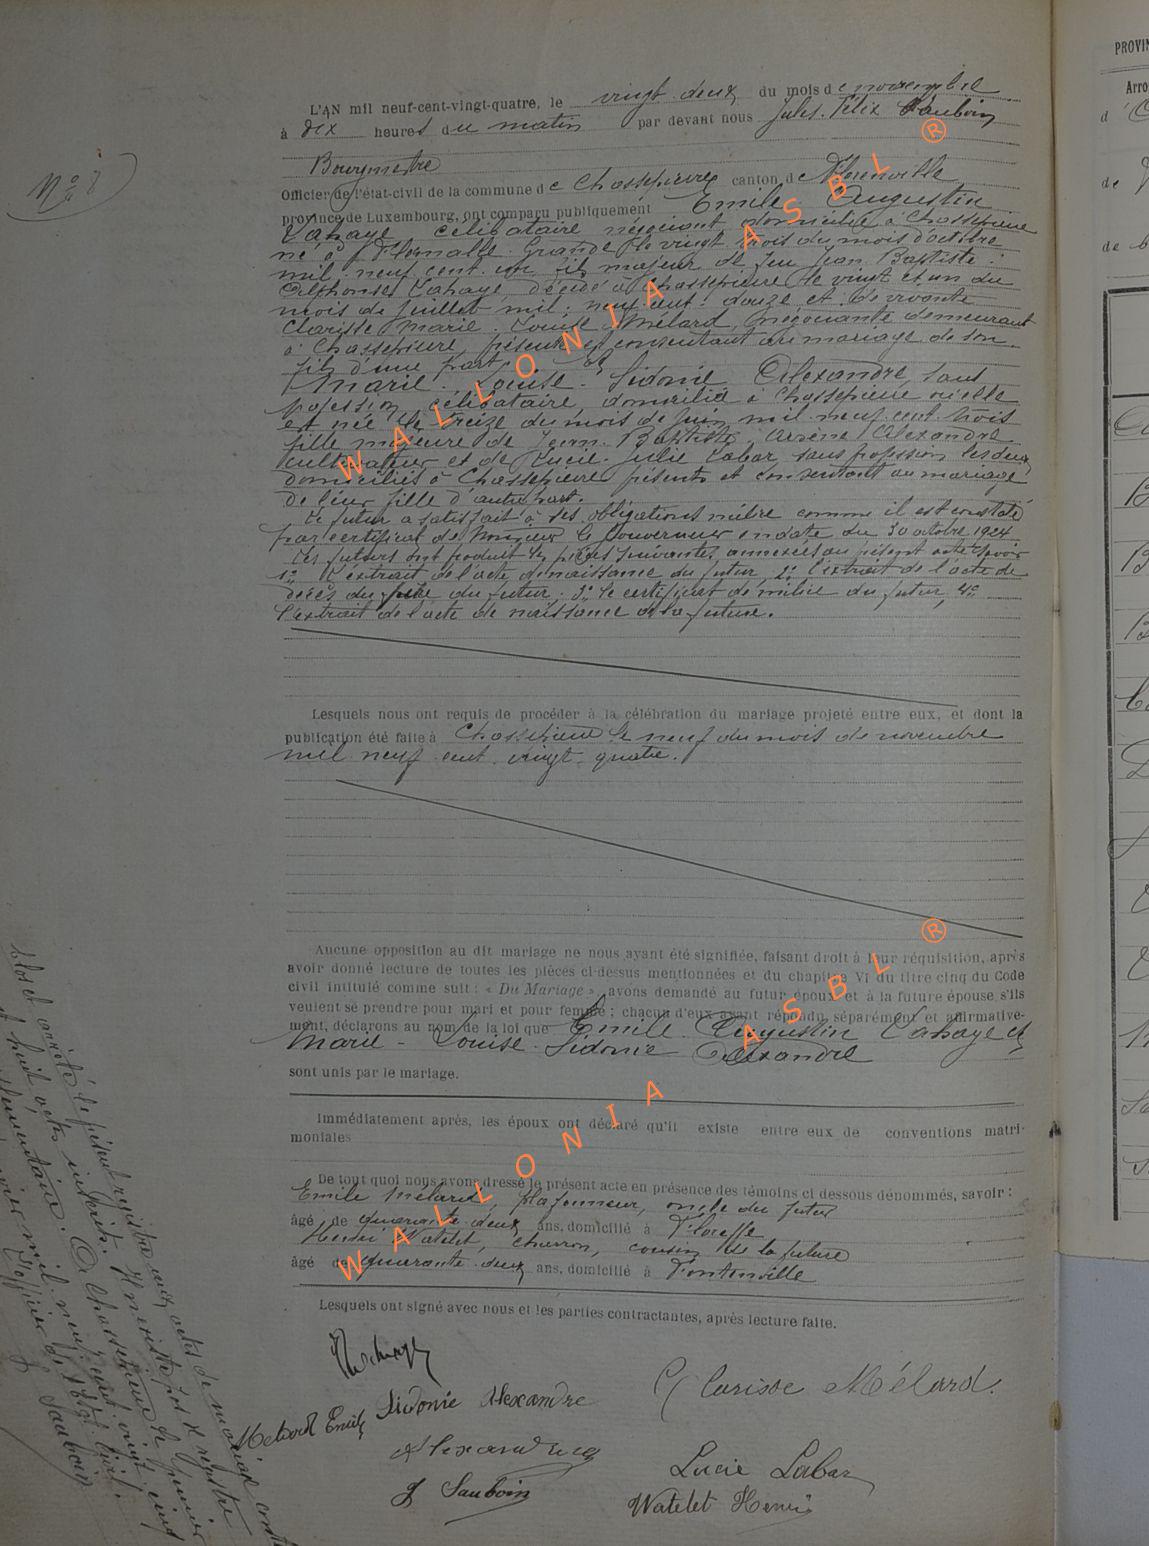 N° 8
L'AN mil neuf-cent-vingt-quatre, le vingt deux du mois de novembre
à dix heures du matin par devant nous Jules. Félix Sauboin
Bourgmestre
Officier de l'état-civil de la commune de Chassepierre canton de Florenville
province de Luxembourg, ont comparu publiquement Emile Augustin
Lahaye célibataire négociant domicilié à Chassepierre
né à Flémalle Grande le vingt trois du mois d'octobre
mil neuf cent un fils majeur de feu Jean Baptiste
Alphonse Lahaye, décédé à Chassepierre le vingt et un du
mois de juillet mil neuf cent douze et de vivante
Clarisse Marie Louise Mélard, négociante demeurant
à Chassepierre, présente et consentant au mariage de son
fils d'une part et
Marie. Louise. Sidonie Alexandre, sans
profession célibataire, domicilié à Chassepierre où elle
est née le treize du mois de juin mil neuf cent trois
fille majeure de Jean. Baptiste. Arsène Alexandre
cultivateur et de Lucie. Julie Labar sans profession les deux
domiciliés à Chassepierre présents et consentant au mariage
de leur fille d'autre part.
Le futur a satisfait à ses obligations milice comme il est constaté
par certificat de Monsieur le Gouverneur en date du 30 octobre 1924
Les futurs ont produit les pièces suivantes, annexées au présent acte savoir
1° L'extrait de l'acte de naissance du futur 2° l'extrait de l'acte de
décès du père du futur. 3° le certificat de milice du futur, 4°
l'extrait de l'acte de naissance de la future.
Lesquels nous ont requis de procéder à la célébration du mariage projeté entre eux, et dont la
publication été faite à Chassepierre le neuf du mois de novembre
mil neuf cent vingt quatre.
Aucune opposition au dit mariage ne nous ayant été signifiée, faisant droit à leur réquisition, après
avoir donné lecture de toutes les pièces ci-dessus mentionnées et du chapitre VI du titre cinq du Code
civil intitulé comme suit : « Du Mariage », avons demandé au futur époux et à la future épouse s'ils
veulent se prendre pour mari et pour femme ; chacun d'eux ayant répondu séparément et affirmative-
ment, déclarons au nom de la loi que Emile Augustin Lahaye et
Marie - Louise. Sidonie Alexandre
sont unis par le mariage.
Immédiatement après, les époux ont déclaré qu'il existe entre eux de conventions matri-
moniales
De tout quoi nous avons dressé le présent acte en présence des témoins ci dessous dénommés, savoir :
Emile Mélard, plafonneur, oncle du futur
âgé de quarante deux ans, domicilié à Floreffe
Henri Watelet, charron, cousin de la future
âgé de quarante deux ans, domicilié à Fontenoille
Lesquels ont signé avec nous et les parties contractantes, après lecture faite.
Sidonie Alexandre
Clarisse Mélard.
Melard Emile
Alexandre
Lucie Labar
J Sauboin
Watelet Henri
Clos et arrêté le présent registre aux actes de mariage
huit actes inscrits.
A Chassepierre le
mil neuf cent vingt cinq
l'officier de l'état civil.
J Sauboin
WALLONIA ASBL ®
WALLONIA ASBL ®
PROVIN
Arro
d'
de
de